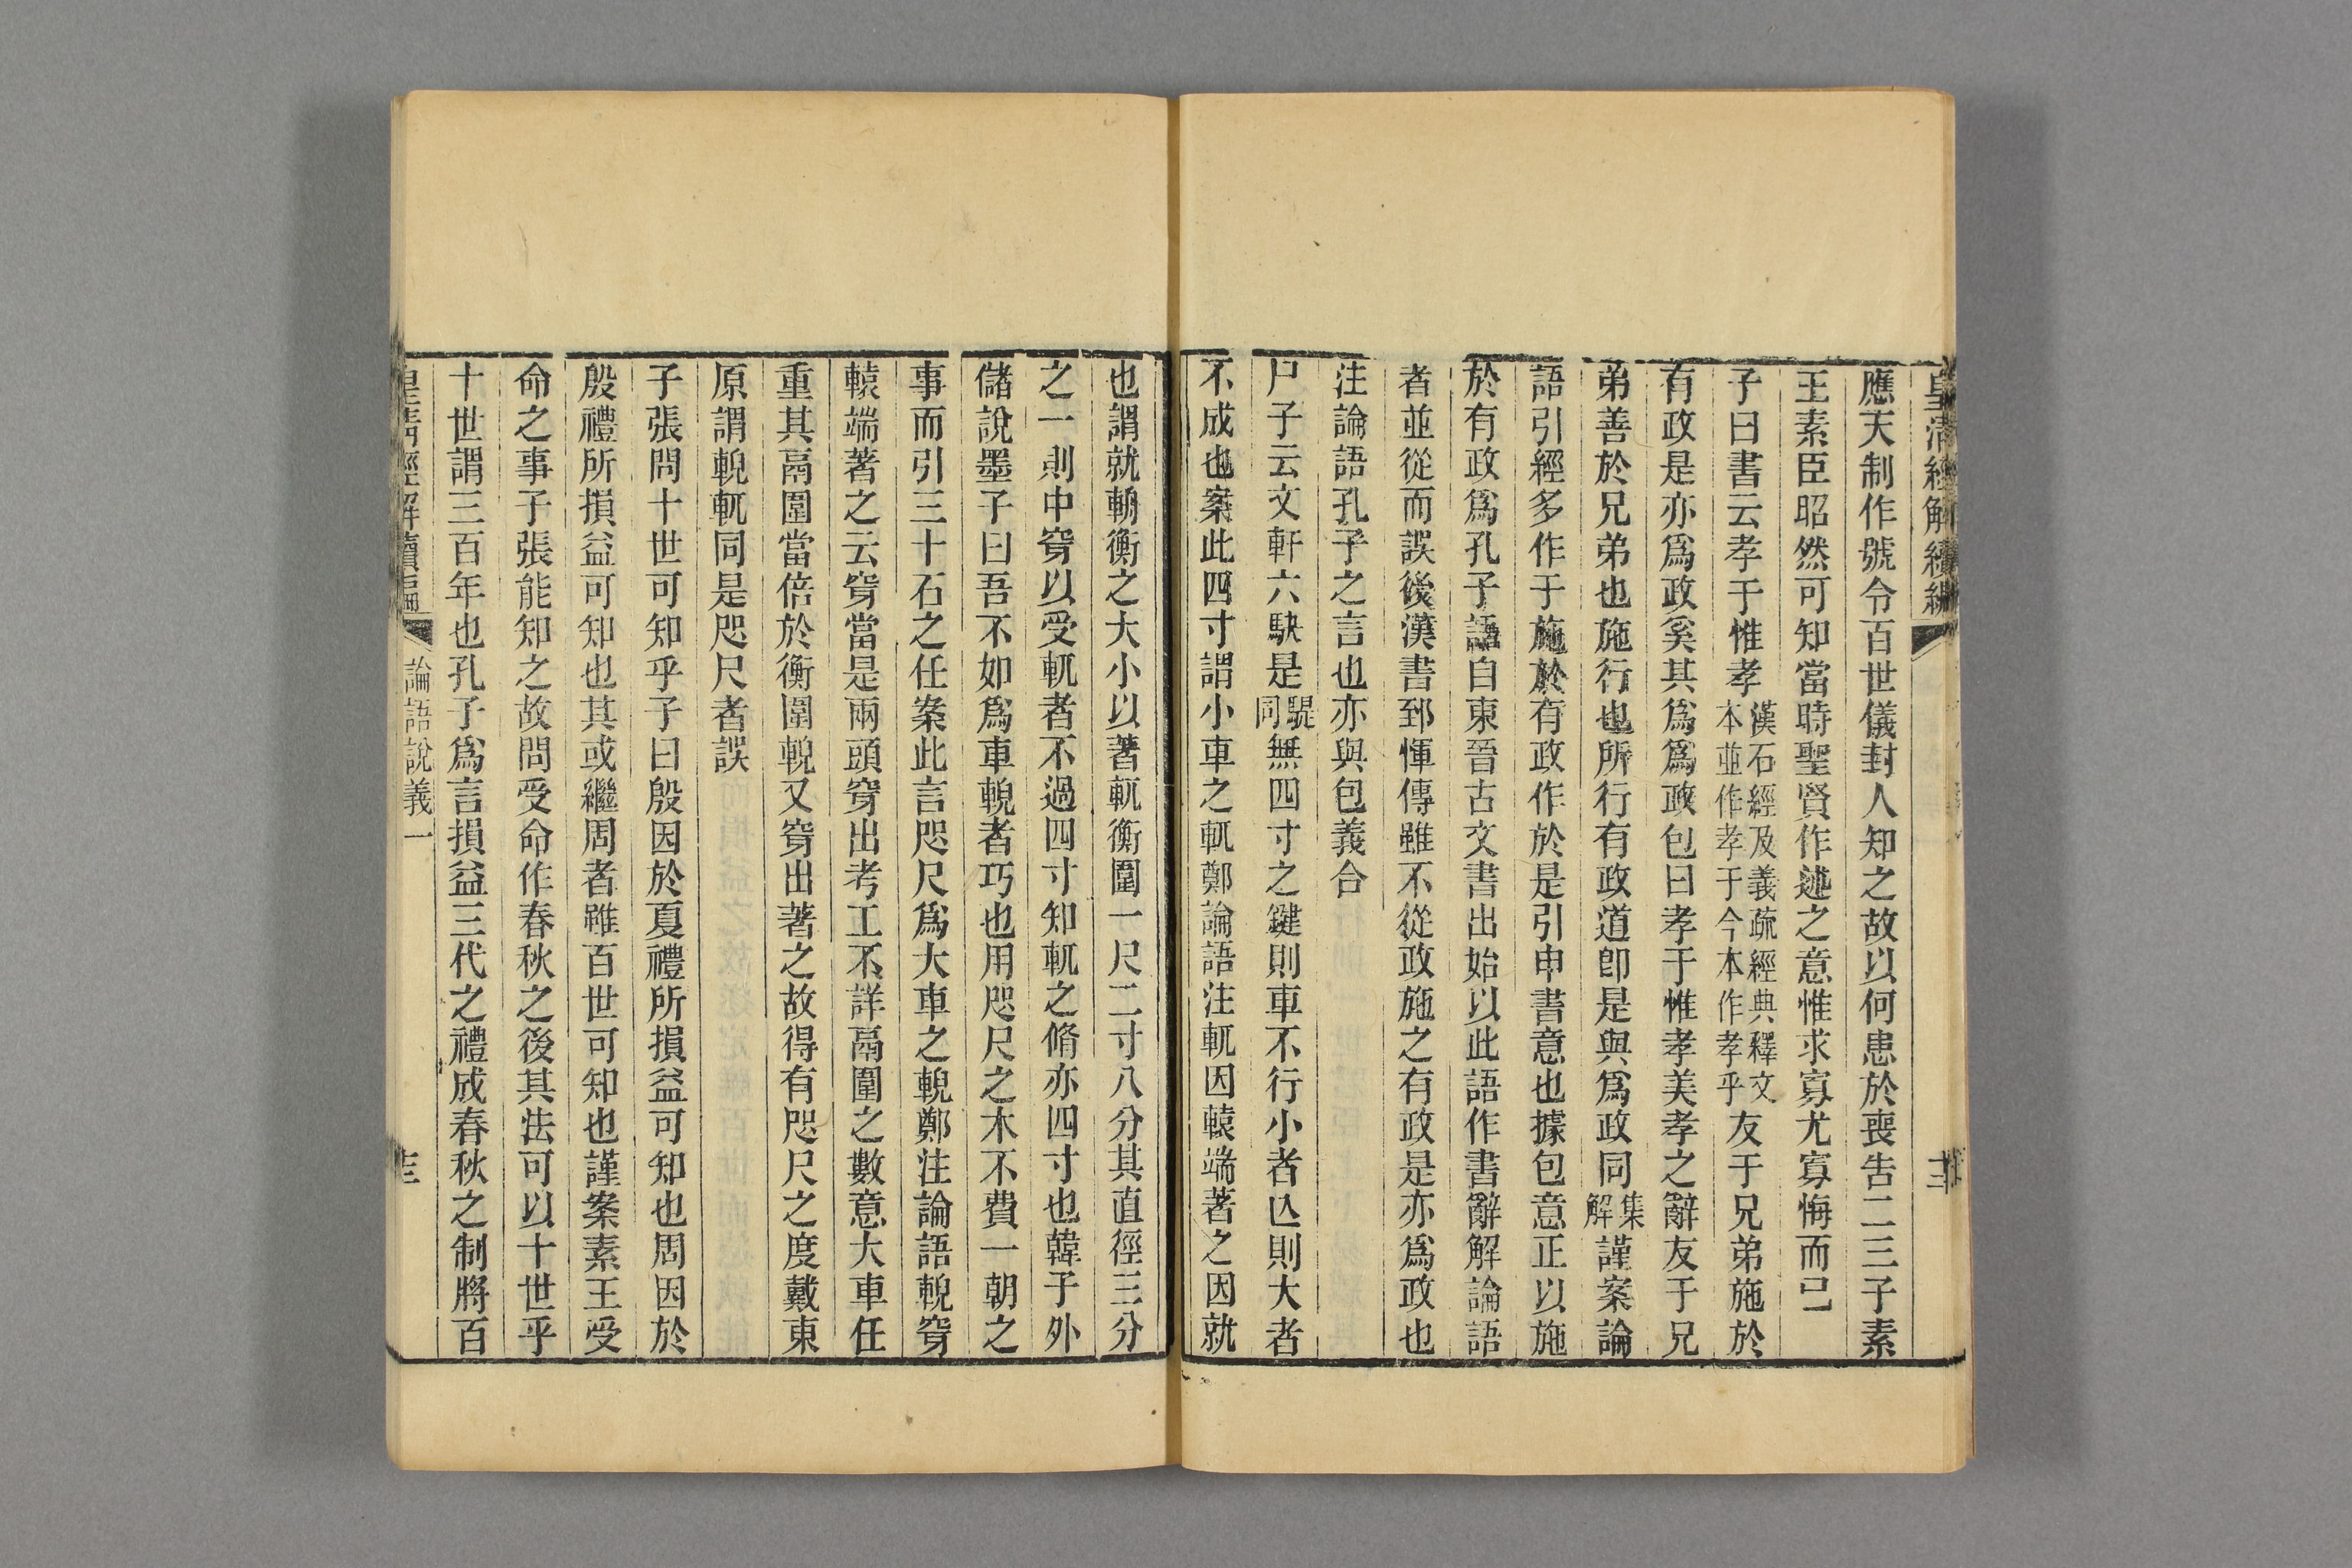 皇清經解續編 十二
應天制作號令百世儀封人知之故以何患於喪告二三子素
王素臣昭然可知當時聖賢作述之意惟求寡尤寡悔而已
子曰書云孝于惟孝漢石經及義疏經典釋文本並作孝于今本作孝乎友于兄弟施於
有政是亦爲政奚其爲爲政包曰孝于惟孝美孝之辭友于兄
弟善於兄弟也施行也所行有政道卽是與爲政同集解謹案論
語引經多作于施於有政作於是引申書意也據包意正以施
於有政爲孔子語自東晉古文書出始以此語作書辭解論語
者並從而誤後漢書郅惲傳雖不從政施之有政是亦爲政也
注論語孔子之言也亦與包義合
尸子云文軒六駃是騠同無四寸之鍵則車不行小者亾則大者
不成也案此四寸謂小車之軏鄭論語注軏因轅端著之因就
也謂就輈衡之大小以著軏衡圍一尺二寸八分其直徑三分
之一則中穿以受軏者不過四寸知軏之脩亦四寸也韓子外
儲說墨子曰吾不如爲車輗者巧也用咫尺之木不費一朝之
事而引三十石之任案此言咫尺爲大車之輗鄭注論語輗穿
轅端著之云穿當是兩頭穿出考工不詳鬲圍之數意大車任
重其鬲圍當倍於衡圍輗又穿出著之故得有咫尺之度戴東
原謂輗軏同是咫尺者誤
子張問十世可知乎子曰殷因於夏禮所損益可知也周因於
殷禮所損益可知也其或繼周者雖百世可知也謹案素王受
命之事子張能知之故問受命作春秋之後其法可以十世乎
十世謂三百年也孔子爲言損益三代之禮成春秋之制將百
皇清經解續編 論語說義一 十三